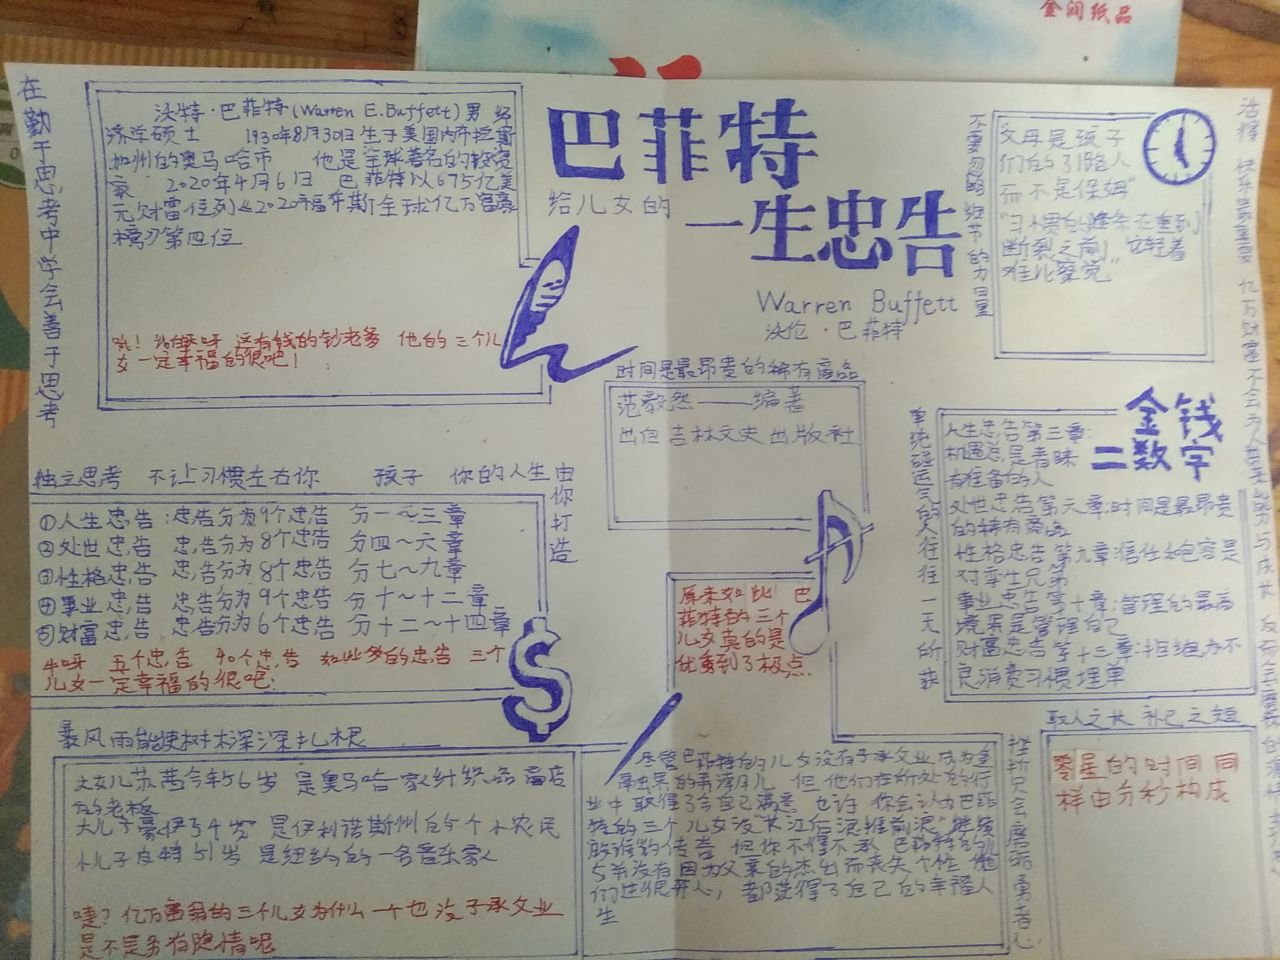 金润纸品
在勤于思考中学会善于思考
沃特·巴菲特(Warren E.Buffett)男 经
济学硕士 1930年8月30日生于美国内布拉斯
加州的奥马哈市 他是全球著名的投资
家 2020年4月6日 巴菲特以675亿美
元财富位列《2020福布斯全球亿万富豪
榜》第四位
这有钱的钞老爹 他的三个儿
女一定幸福的很吧!
巴菲特
给儿女的
一生忠告
Warren Buffett
沃伦·巴菲特
不要忽略细节的力量
父母是孩子
们的引路人
而不是保姆"
"习惯的链条在重到
断裂之前,它轻着
难儿察觉"
活得快乐最重要 亿万财富不会为人带来能力与成长 反而会磨
时间是最昂贵的稀有商品
范毅然——编著
出自吉林文史出版社
金钱
二数字
单纯碰运气的人往往一天所获
人生忠告第三章:
机遇总是青睐
有准备的人
处世忠告第六章:时间是最昂贵
的稀有商品
性格忠告第九章:信任和包容是
对孪生兄弟
事业忠告第十章:管理的最高
境界是管理自己
财富忠告第十三章:拒绝为不
良消费习惯埋单
独立思考 不让习惯左右你 孩子 你的人生由你打造
①人生忠告:忠告分为9个忠告 分一~三章
②处世忠告 忠告分为8个忠告 分四~六章
③性格忠告 忠告分为8个忠告 分七~九章
④事业忠告 忠告分为9个忠告 分十~十二章
⑤财富忠告 忠告分为6个忠告 分十二~十四章
牛呀 五个忠告 40个忠告 如此多的忠告 三个
儿女一定幸福的很吧:
原来如此! 巴
菲特的三个
儿女真的是
优秀到了极点
暴风雨能使树木深深扎根
大女儿苏茜今年56岁 是奥马哈一家纤织品商店
的老板
大儿子豪伊54岁 是伊利诺斯州的一个小农民
小儿子皮特51岁 是纽约的一名音乐家
哇? 亿万富翁的三个儿女为什么一个也没子承父业
是不是另有隐情呢
尽管巴菲特的儿女没有子承父业成为金
融界的弄潮儿 但他们在所处的行
业中取得了令自己满意 也许 你会认为巴菲
特的三个儿女没"长江后浪推前浪"继续
股谁的传奇 但你不得不承 巴菲特的儿
女并没有因为父亲的杰出而丧失个性 他
们过很开心, 都获得了自己的幸福人
生
挫折只会磨砺勇者心
取人之长 补己之短
零星的时间同
样由分秒构成